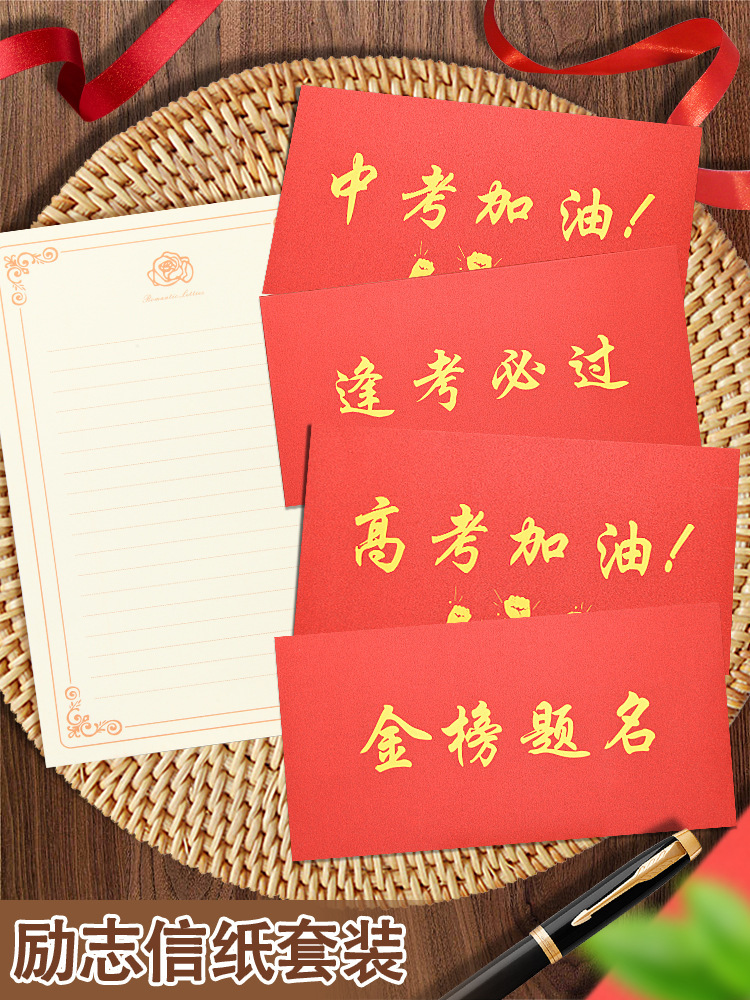 中考加油！
Romantic Letters
逢考必过
高考加油！
金榜题名
励志信纸套装